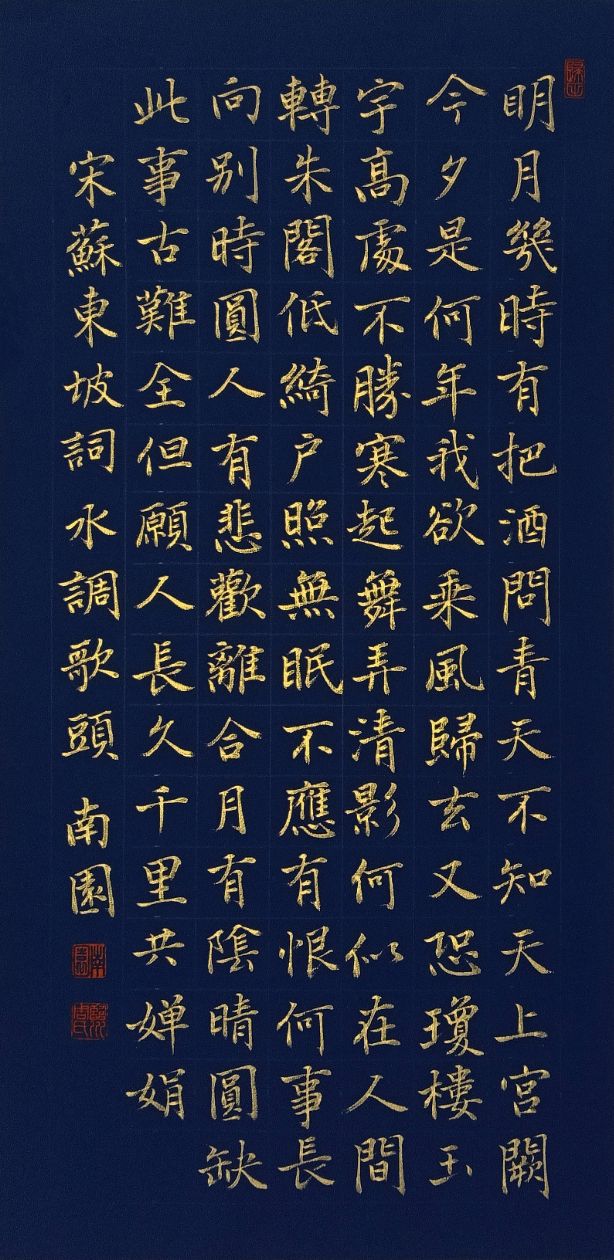 明月幾時有把酒問青天不知天上宮闕
今夕是何年我欲乘風歸去又恐瓊樓玉
宇高處不勝寒起舞弄清影何似在人間
轉朱閣低綺户照無眠不應有恨何事長
向别時圓人有悲歡離合月有陰晴圓缺
此事古難全但願人長久千里共嬋娟
宋蘇東坡詞水調歌頭 南園